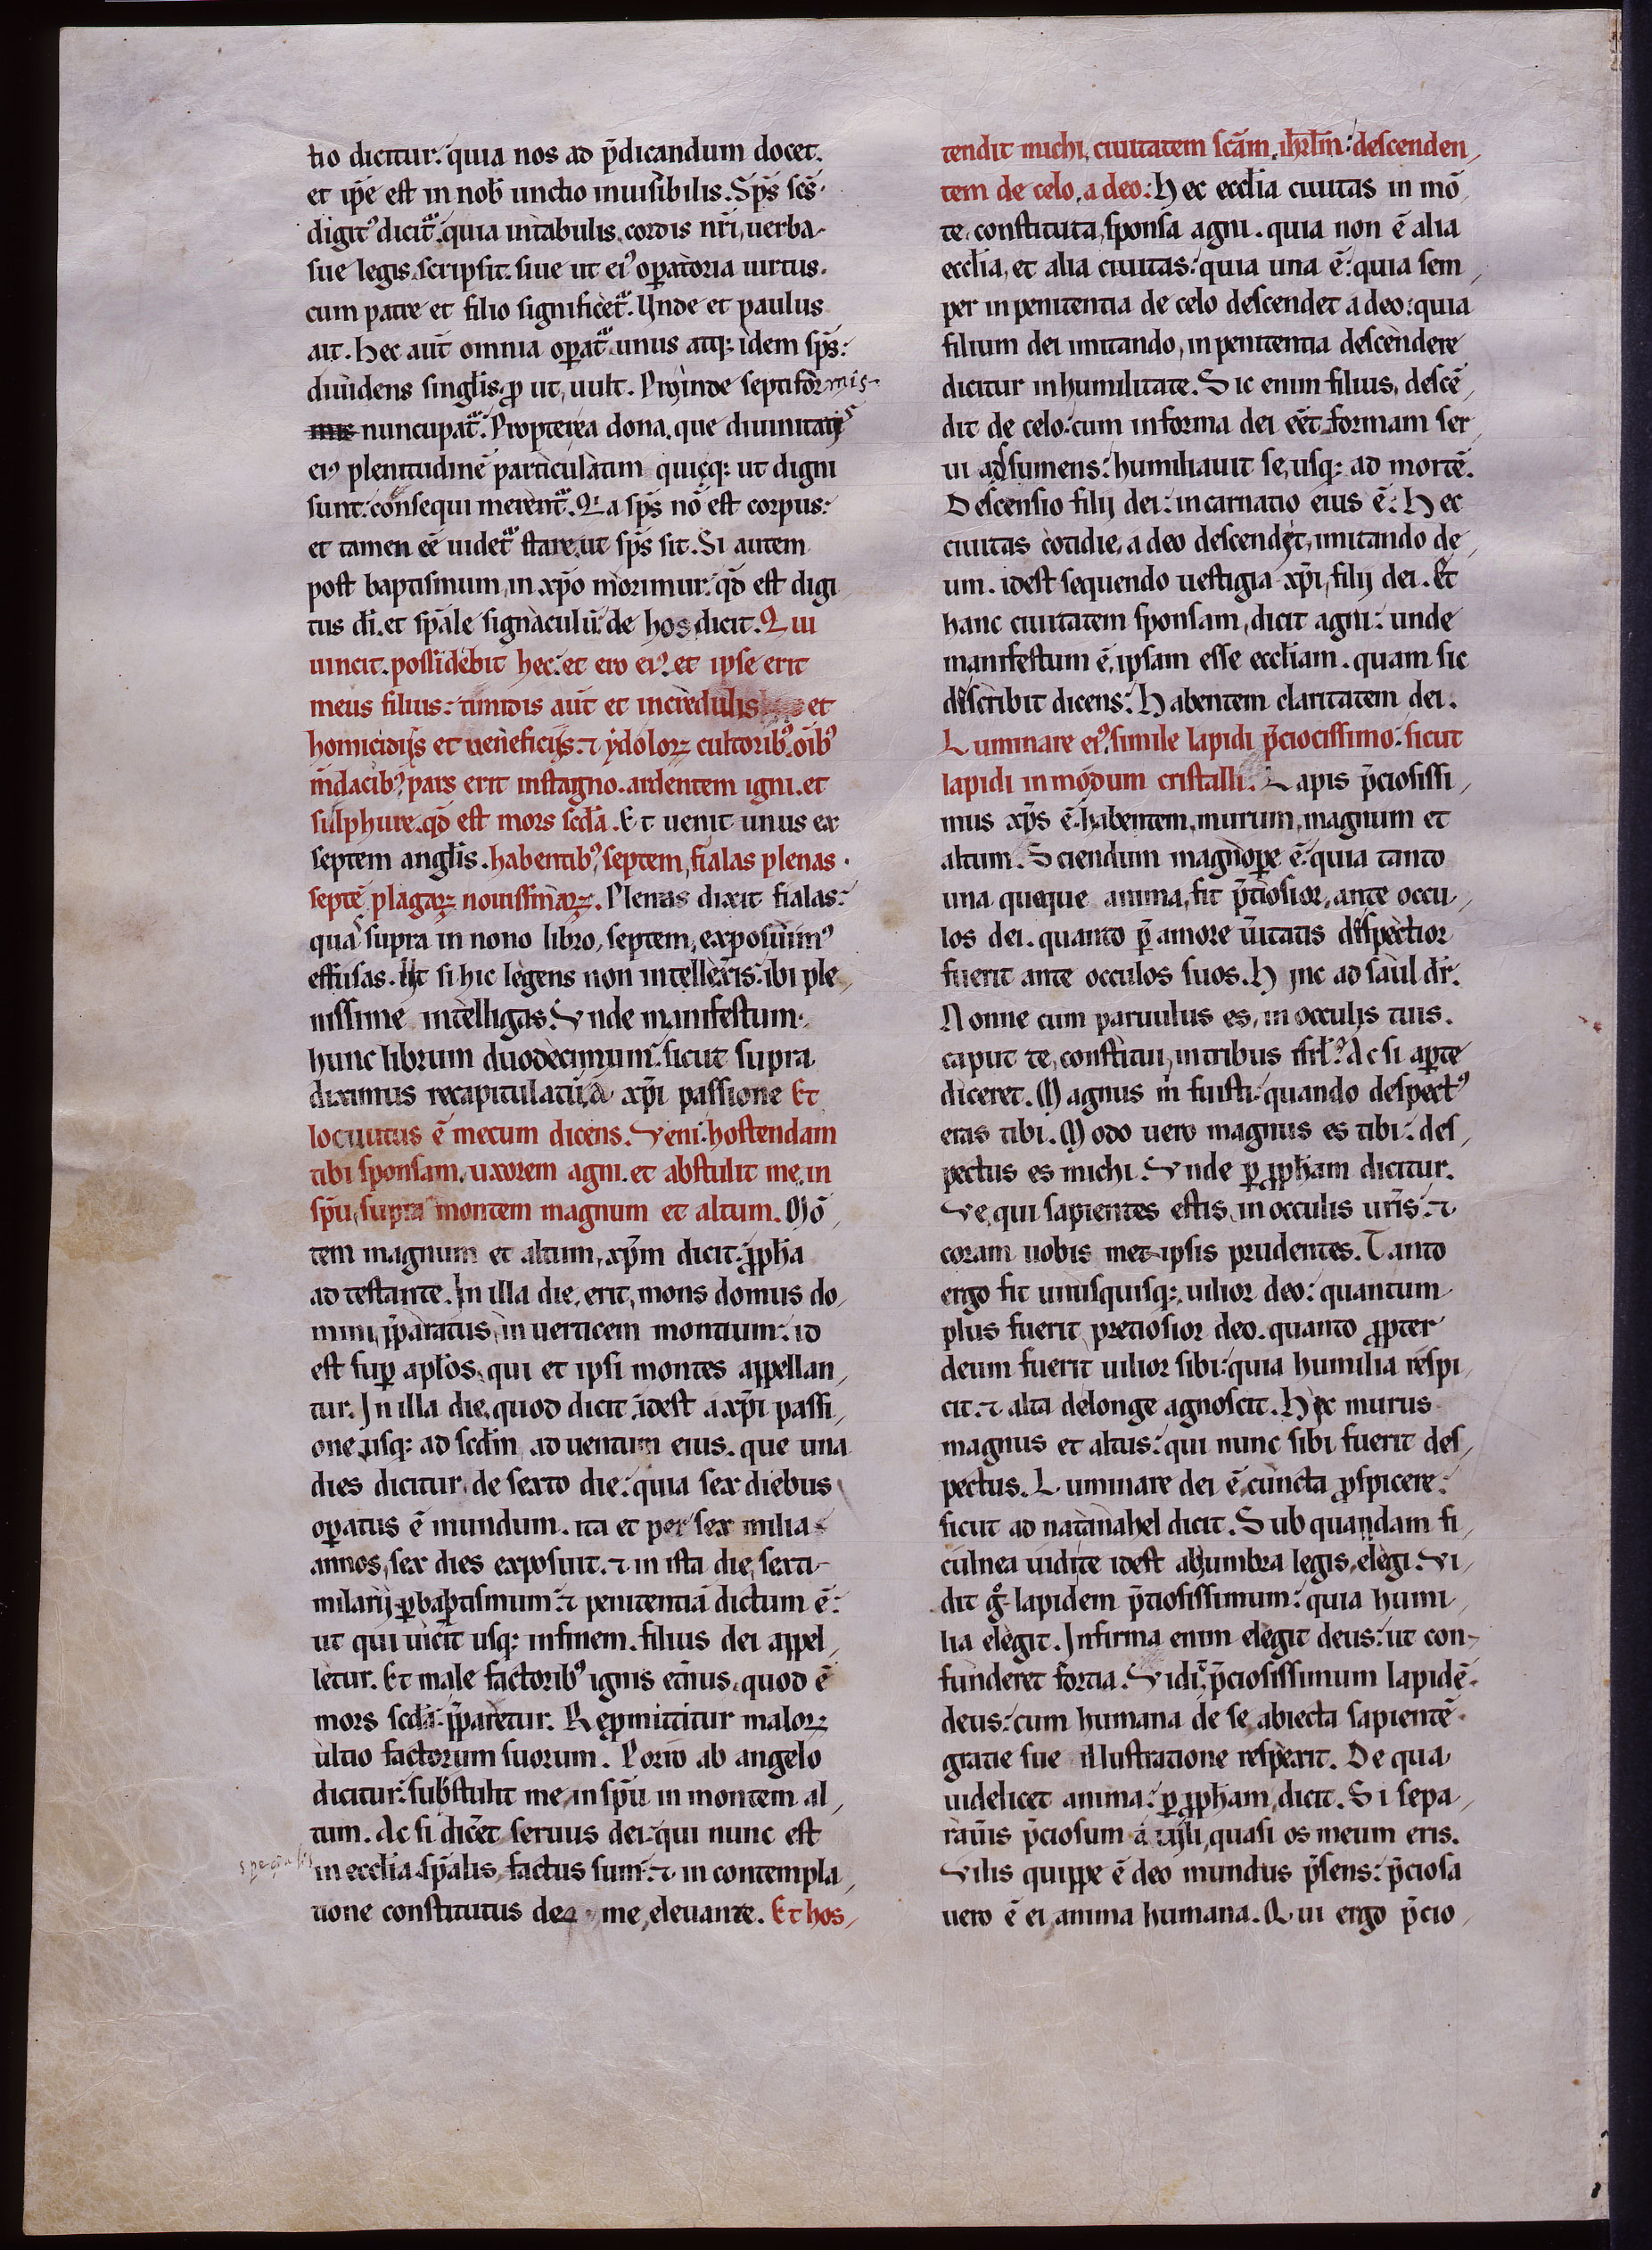 tio dicitur. quia nos ad p̄dicandum docet.
et ip̄e est in nob̄ unctio inuisibilis. Sp̄s sc̄s.
digitꝰ dicit̃. quia intabulis cordis nr̄i, uerba
sue legis scripsit. siue ut eiꝰ op̱atoria uirtus.
cum patre et filio significet̃. Vnde et paulus
ait. Hec aut̄ omnia op̱at̃ unus atq; idem sp̄s:
diuidens singl̄is, ꝓ ut, uult. Proinde septifor mis
nuncupat̃. Propterea dona, que diuinitatis
eiꝰ plenitudinē particulatim quicq; ut digni
sunt: consequi merent̃. Q̄a sp̄s nō est corpus:
et tamen eē uidet̃ stare, ut sp̄s sit. Si autem
post baptismum, in xp̄o morimur: qd̄ est digi
tus d̄i. et sp̄ale signaculū: de hos dicit. Qui
uincit. possidebit hec: et ero eiꝰ. et ipse erit
meus filius: timidis aut̄ et incredulis et
homicidijs et ueneficijs. ⁊ ydoloꝝ cultoribꝰ. oībꝰ
m̄dacibꝰ, pars erit instagno. ardentem igni. et
sulphure. qd̄ est mors scd̄a. Et uenit unus ex
septem angl̄is. habentibꝰ, septem, fialas plenas.
septē plagaꝝ nouissimaꝝ. Plenas dixit fialas:
qua supra in nono libro, septem, exposuimꝰ
effusas. Ut si hic legens non intellex̄is: ibi ple
nissime intelligas. Vnde manifestum
hunc librum duodecimum: sicut supra
diximus recapitulatū, a xp̄i passione Et
locuutus ē mecum dicens. Veni: hostendam
tibi sponsam, uxorem agni. et abstulit me, in
sp̄u, supra montem magnum et altum. Mō
tem magnum et altum, xp̄m dicit: ꝓph̄a
ad testante. In illa die, erit, mons domus do
mini, p̄paratus, in uerticem montium: id
est sup̱ apl̄os, qui et ipsi montes appellan
tur. In illa die, quod dicit: idest a xp̄i passi
one, usq; ad scd̄m ad uentum eius. que una
dies dicitur, de sexto die: quia sex diebus
op̱atus ē mundum. ita et per sex milia
annos, sex dies exposuit. ⁊ in ista die, sexti
milarij p̱ baptismum: ⁊ penitentiā dictum ē:
ut qui uicit̄ usq; infinem. filius dei appel
letur. Et male factoribꝰ ignis et̄nus, quod ē
mors scd̄a: p̄paretur. Rep̱mittitur maloꝝ
ultio factorum suorum. Porro ab angelo
dicitur: substulit me, in sp̄u in montem al
tum. Ac si dic̄et seruus dei: qui nunc est
in eccl̄ia sp̄alis, factus sum: ⁊ in contempla
tione constitutus deo me, eleuante. Et hos
tendit michi, ciuitatem sc̄am, ihr̄l̄m: descenden
tem de celo, a deo: Hec eccl̄ia ciuitas in mō
te, constituta, sponsa agni. quia non ē alia
eccl̄ia, et alia ciuitas: quia una ē: quia sem
per in penitentia de celo descendet a deo: quia
filium dei imitando, in penitentia descendere
dicitur in humilitate. Sic enim filius, descē
dit de celo: cum informa dei eēt formam ser
ui adsumens: humiliauit se, usq; ad mortē.
Descensio filij dei: incarnatio eius ē: Hec
ciuitas cotidie, a deo descendit, imitando de
um. idest sequendo uestigia xp̄i, filij dei. Et
hanc ciuitatem sponsam, dicit agni: unde
manifestum ē, ipsam esse eccl̄iam. quam sic
describit dicens: Habentem claritatem dei.
Luminare eiꝰ, simile lapidi p̄ciocissimo: sicut
lapidi inmodum cristalli. Lapis p̄ciosissi
mus xp̄s ē. habentem, murum, magnum et
altum. Sciendum magnop̱e ē: quia tanto
una queque anima, fit p̄tiosior, ante occu
los dei. quanto p̱ amore ūitatis despectior
fuerit ante occulos suos. Hinc ad saul dr̄.
Nonne cum paruulus es, in occulis tuis.
caput te, constitui, in tribus isrl̄? Ac si ap̱te
diceret. Magnus m̄ fuisti: quando despectꝰ
eras tibi. Modo uero magnus es tibi: des
pectus es michi. Vnde p̱ ꝓph̄am dicitur.
Ve, qui sapientes estis, in occulis ur̄is: ⁊
coram uobis met ipsis prudentes. Tanto
ergo fit unusquisq;, uilior deo: quantum
plus fuerit pretiosior deo. quanto ꝓpter
deum fuerit uilior sibi: quia humilia respi
cit. ⁊ alta delonge agnoscit. Hec murus
magnus et altus: qui nunc sibi fuerit des
pectus. Luminare dei ē, cuncta ꝓspicere:
sicut ad natanahel dicit. Sub quandam fi
culnea uidi te idest ab umbra legis, elegi. Vi
dit gͦ lapidem p̄tiosissimum: quia humi
lia elegit. Infirma enim elegit deus: ut con
funderet fortia. Vidit p̄ciosissimum lapidē.
deus: cum humana de se, abiecta sapientē
gratie sue illustratione respexit. De qua
uidelicet anima: p̱ ꝓph̄am, dicit. Si sepa
rau̅is p̄ciosum a uili, quasi os meum eris.
Vilis quippe ē deo mundus p̄sens: p̄ciosa
uero ē ei, anima humana. Qui ergo p̄cio